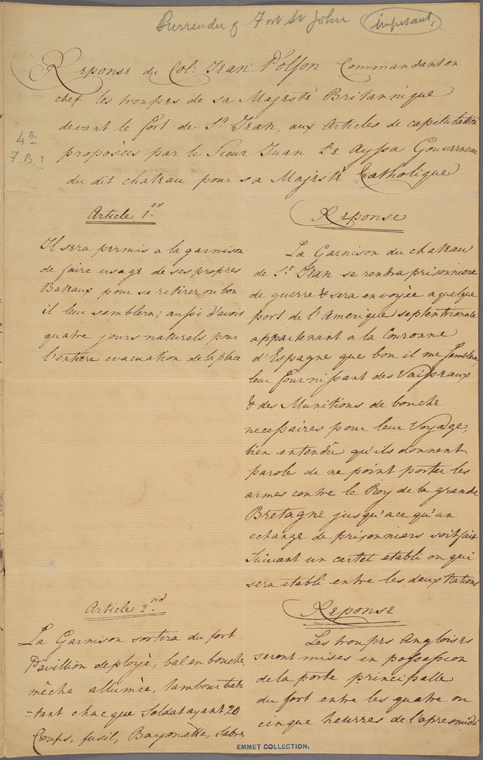 Surrender of Fort St John
important,
4º
7. B. !
Reponse du Col: Jean Polson Commandant en
chef les troupes de sa Majesté Britannique
devant le fort de St. Jean, aux Articles de capitulation
proposées par le Sieur Juan De Ayssa Gouverneur
du dit chateau pour sa Majesté Catholique
Article 1.er
Il sera permis a la garnison
de faire usage de ses propres
Bateaux pour se retirer, ou bon
il leur semblera; aussi d'avois
quatre jours naturels pour
l'entiere evacuation de la place
Reponse
La Garnison du chateau
de St. Jean se rendra prisonniere
de guerre & sera envoyée a quelque
port de l'Amerique septentrionale
appartenant a la Couronne
d'Espagne que bon il me semblera
leur fournissant des Vaisseaux
& des Munitions de bouche
necessaires pour leur Voyage,
bien entendu qu'ils donnent
parole de ne point porter les
armes contre le Roy de la grande
Bretagne jusqu'a ce qu'un
echange de prisonniers soit fait
Suivant un cartel etabli ou qui
sera etabli entre les deux Nations
Article 2.nd
La Garnison sortira du fort
Pavillion deployé, bal en bouche
mêche allumée, tambour bat-
-tant chacque Soldat ayant 20
Coups, fusil, Bayonette, Sabre
Reponse
Les troupes Angloises
seront mises en possession
de la porte principalle
du fort entre les quatre ou
cinque heurres de l'apresmidi
EMMET COLLECTION.